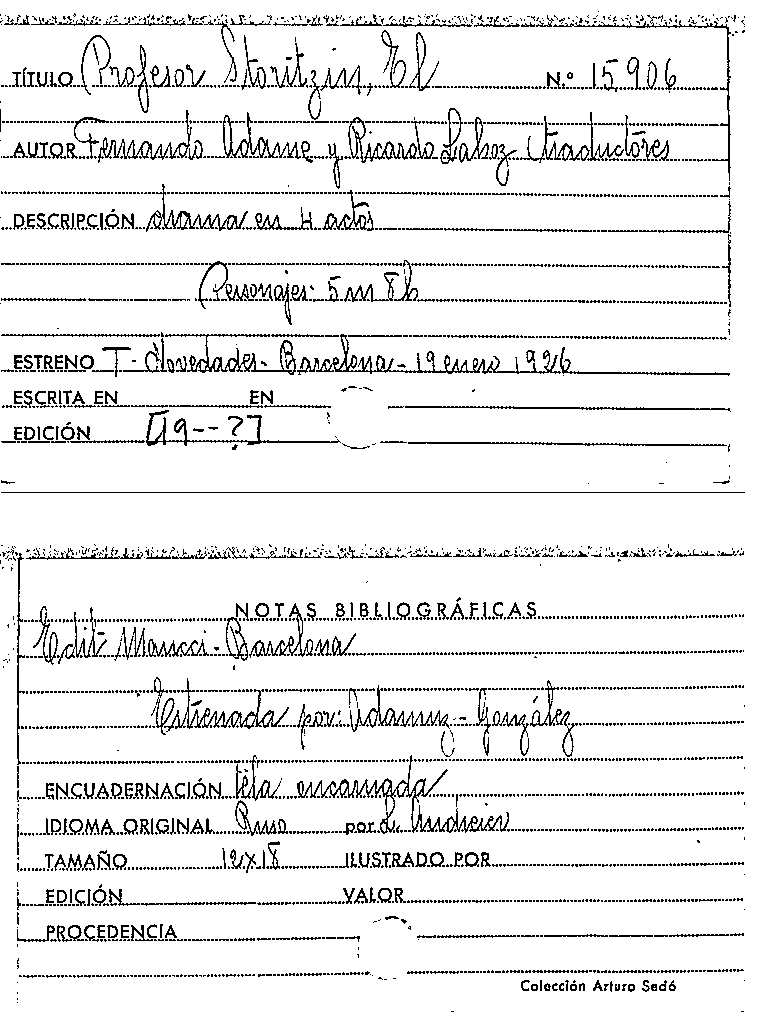 TÍTULO Profesor Storitzin, El N.º 15.906
AUTOR Fernando Adame y Ricardo Lahoz (traductores
DESCRIPCIÓN drama en 4 actos
Personajes: 5 m 8 h
ESTRENO T- Novedades- Barcelona- 19 enero 1926
ESCRITA EN EN
EDICIÓN [19--?]
NOTAS BIBLIOGRÁFICAS
Edit Maucci- Barcelona
Estrenada por: Adamuz- González
ENCUADERNACIÓN tela encarnada
IDIOMA ORIGINAL Ruso por L. Andreiev
TAMAÑO 12x18 ILUSTRADO POR
EDICIÓN VALOR
PROCEDENCIA
Colección Arturo Sedó